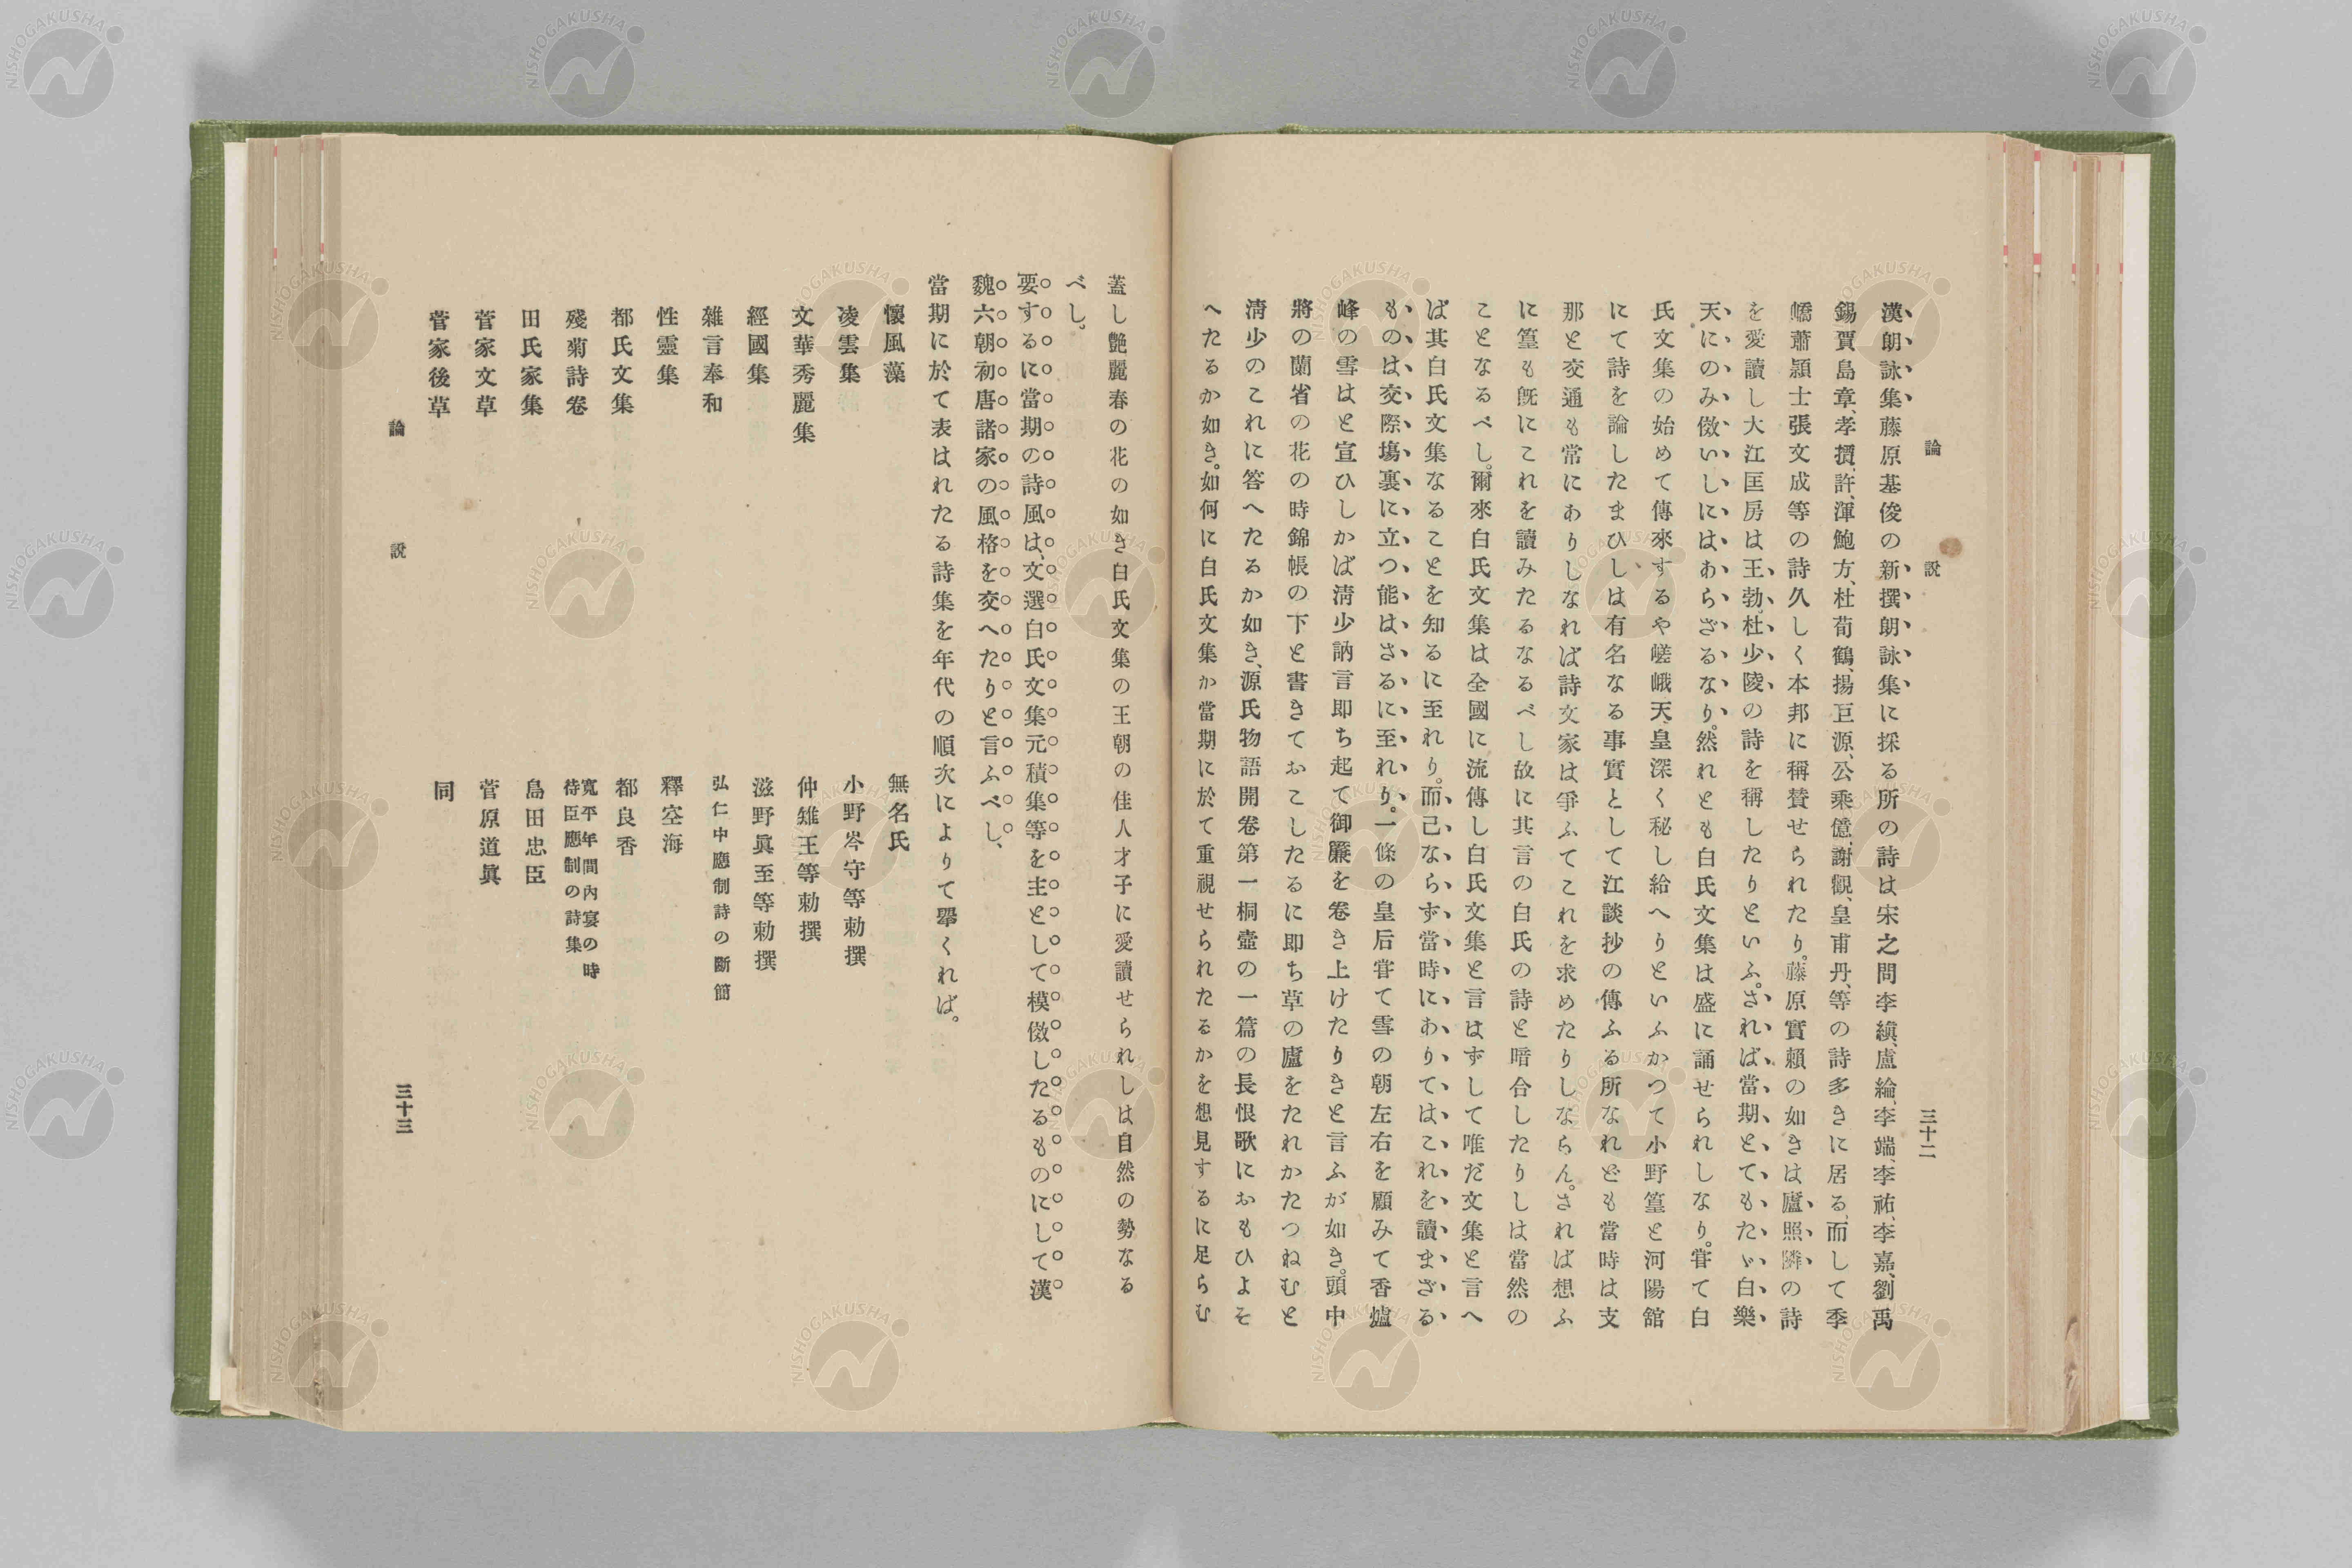 論說
三十二
漢朗詠集藤原基俊の新撰朗詠集に採る所の詩は宋之問李縝、盧綸、李端、李祐、李嘉、劉禹
錫賈島章、孝摽、許、渾鮑方、杜荀鶴、揚巨源、公乘億、謝觀、皇甫丹、等の詩多きに居る、而して季
嶠蕭潁士張文成等の詩久しく本邦に稱賛せられたり。藤原實賴の如きは廬照隣の詩
を愛讀し大江匡房は王勃、杜少陵の詩を稱したりといふ。されば當期とてもたゞ白樂
天にのみ倣いしにはあらざるなり。然れとも白氏文集は盛に誦せられしなり。甞て白
氏文集の始めて傳來するや嵯峨天皇深く秘し給へりといふかつて小野篁と河陽舘
にて詩を論したまひしは有名なる事實として江談抄の傳ふる所なれども當時は支
那と交通も常にありしなれば詩文家は爭ふてこれを求めたりしならん。されば想ふ
に篁も旣にこれを讀みたるなるべし故に其言の白氏の詩と暗合したりしは當然の
ことなるべし。爾來白氏文集は全國に流傳し白氏文集と言はずして唯だ文集と言へ
ば其白氏文集なることを知るに至れり。而己ならず當時にありてはこれを讀まざる
ものは交際塲裏に立つ能はさるに至れり。一條の皇后甞て雪の朝左右を顧みて香爐
峰の雪はと宣ひしかば淸少訥言即ち起て御簾を卷き上けたりきと言ふが如き。頭中
將の蘭省の花の時錦帳の下と書きておこしたるに即ち草の廬をたれかたつねむと
淸少のこれに答へたるか如き、源氏物語開卷第一桐壺の一篇の長恨歌におもひよそ
へたるか如き。如何に白氏文集か當期に於て重視せられたるかを想見するに足らむ
蓋し艶麗春の花の如き白氏文集の王朝の佳人才子に愛讀せられしは自然の勢なる
べし。
要するに當期の詩風は、文選白氏文集元積集等を主として模倣したるものにして漢
魏六朝初唐諸家の風格を交へたりと言ふべし、
當期に於て表はれたる詩集を年代の順次によりて擧くれば。
懷風藻　無名氏
凌雲集　小野岑守等勅撰
文華秀麗集　仲雄王等勅撰
經國集　滋野眞至等勅撰
雜言奉和　弘仁中應制詩の斷簡
性靈集　釋空海
都氏文集　都良香
殘菊詩卷　寬平年間內宴の時
待臣應制の詩集
田氏家集　島田忠臣
菅家文草　菅原道眞
菅家後草　同
論說
三十三